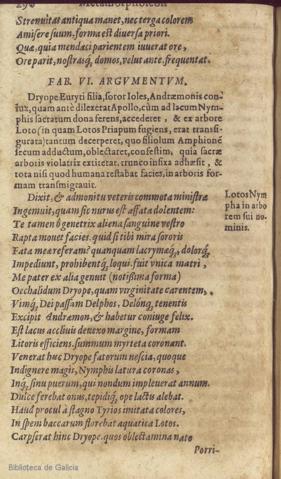 290 Metamorphoseon
Strenuitas antiqua manet, nec terga colorem
Amisere suum. forma est diuersa priori.
Quæ, quia mendaci parientem iuuerat ore,
Ore parit, nostrasq́, domos, velut ante. frequentat.
FAB. VI. ARGVMENTVM.
Dryope Euryti filia, soror Ioles, Andræmonis con-
iux, quam antè dilexerat Apollo, cùm ad lacum Nym-
phis sacratum dona ferens, accederet, & ex arbore
Loto (in quam Lotos Priapum fugiens, erat transfi-
gurata) tantùm decerperet, quo filiolum Amphionē
secum adductum, oblectaret, consestim, quia sacra
arboris violatrix extiterat, trunco infixa adhæsit, &
tota nisi quod humana restabat facies, in arboris for-
mam transmigrauit.
Dixit, & admonitu veteris commota ministræ
Ingemuit, quam sic nurus est affata dolentem:
Te tamen ô genetrix aliena sanguine vestro
Rapta mouet facies. quid si tibi mira sororis
Fata meæ referam? quanquam lacrymæq́, dolorq́,
Impediunt, prohibentq́, loqui. fuit vnica matri,
Me pater ex alia genuit (notissima forma)
Oechalidum Dryope, quam virginitate carentem,
Vimq́, Dei passam Delphos, Delonq́, tenentis
Excipit Andræmon, & habetur coniuge felix.
Est lacus accliuis deuexo margine, formam
Litoris efficiens. summum myrteta coronant.
Venerat huc Dryope fatorum nescia, quoque
Indignere magis, Nymphis latura coronas,
Inq́, sinu puerum, qui nondum impleuerat annum.
Dulce ferebat onus, tepidiq́, ope lactis alebat.
Haud procul à stagno Tyrios imitata colores,
In spem baccarum florebat aquatica Lotos.
Carpserat hinc Dryope. quos oblectamina nato
Porri-
Lotos Nym
pha in arbo
rem sui no-
minis.
Biblioteca de Galicia